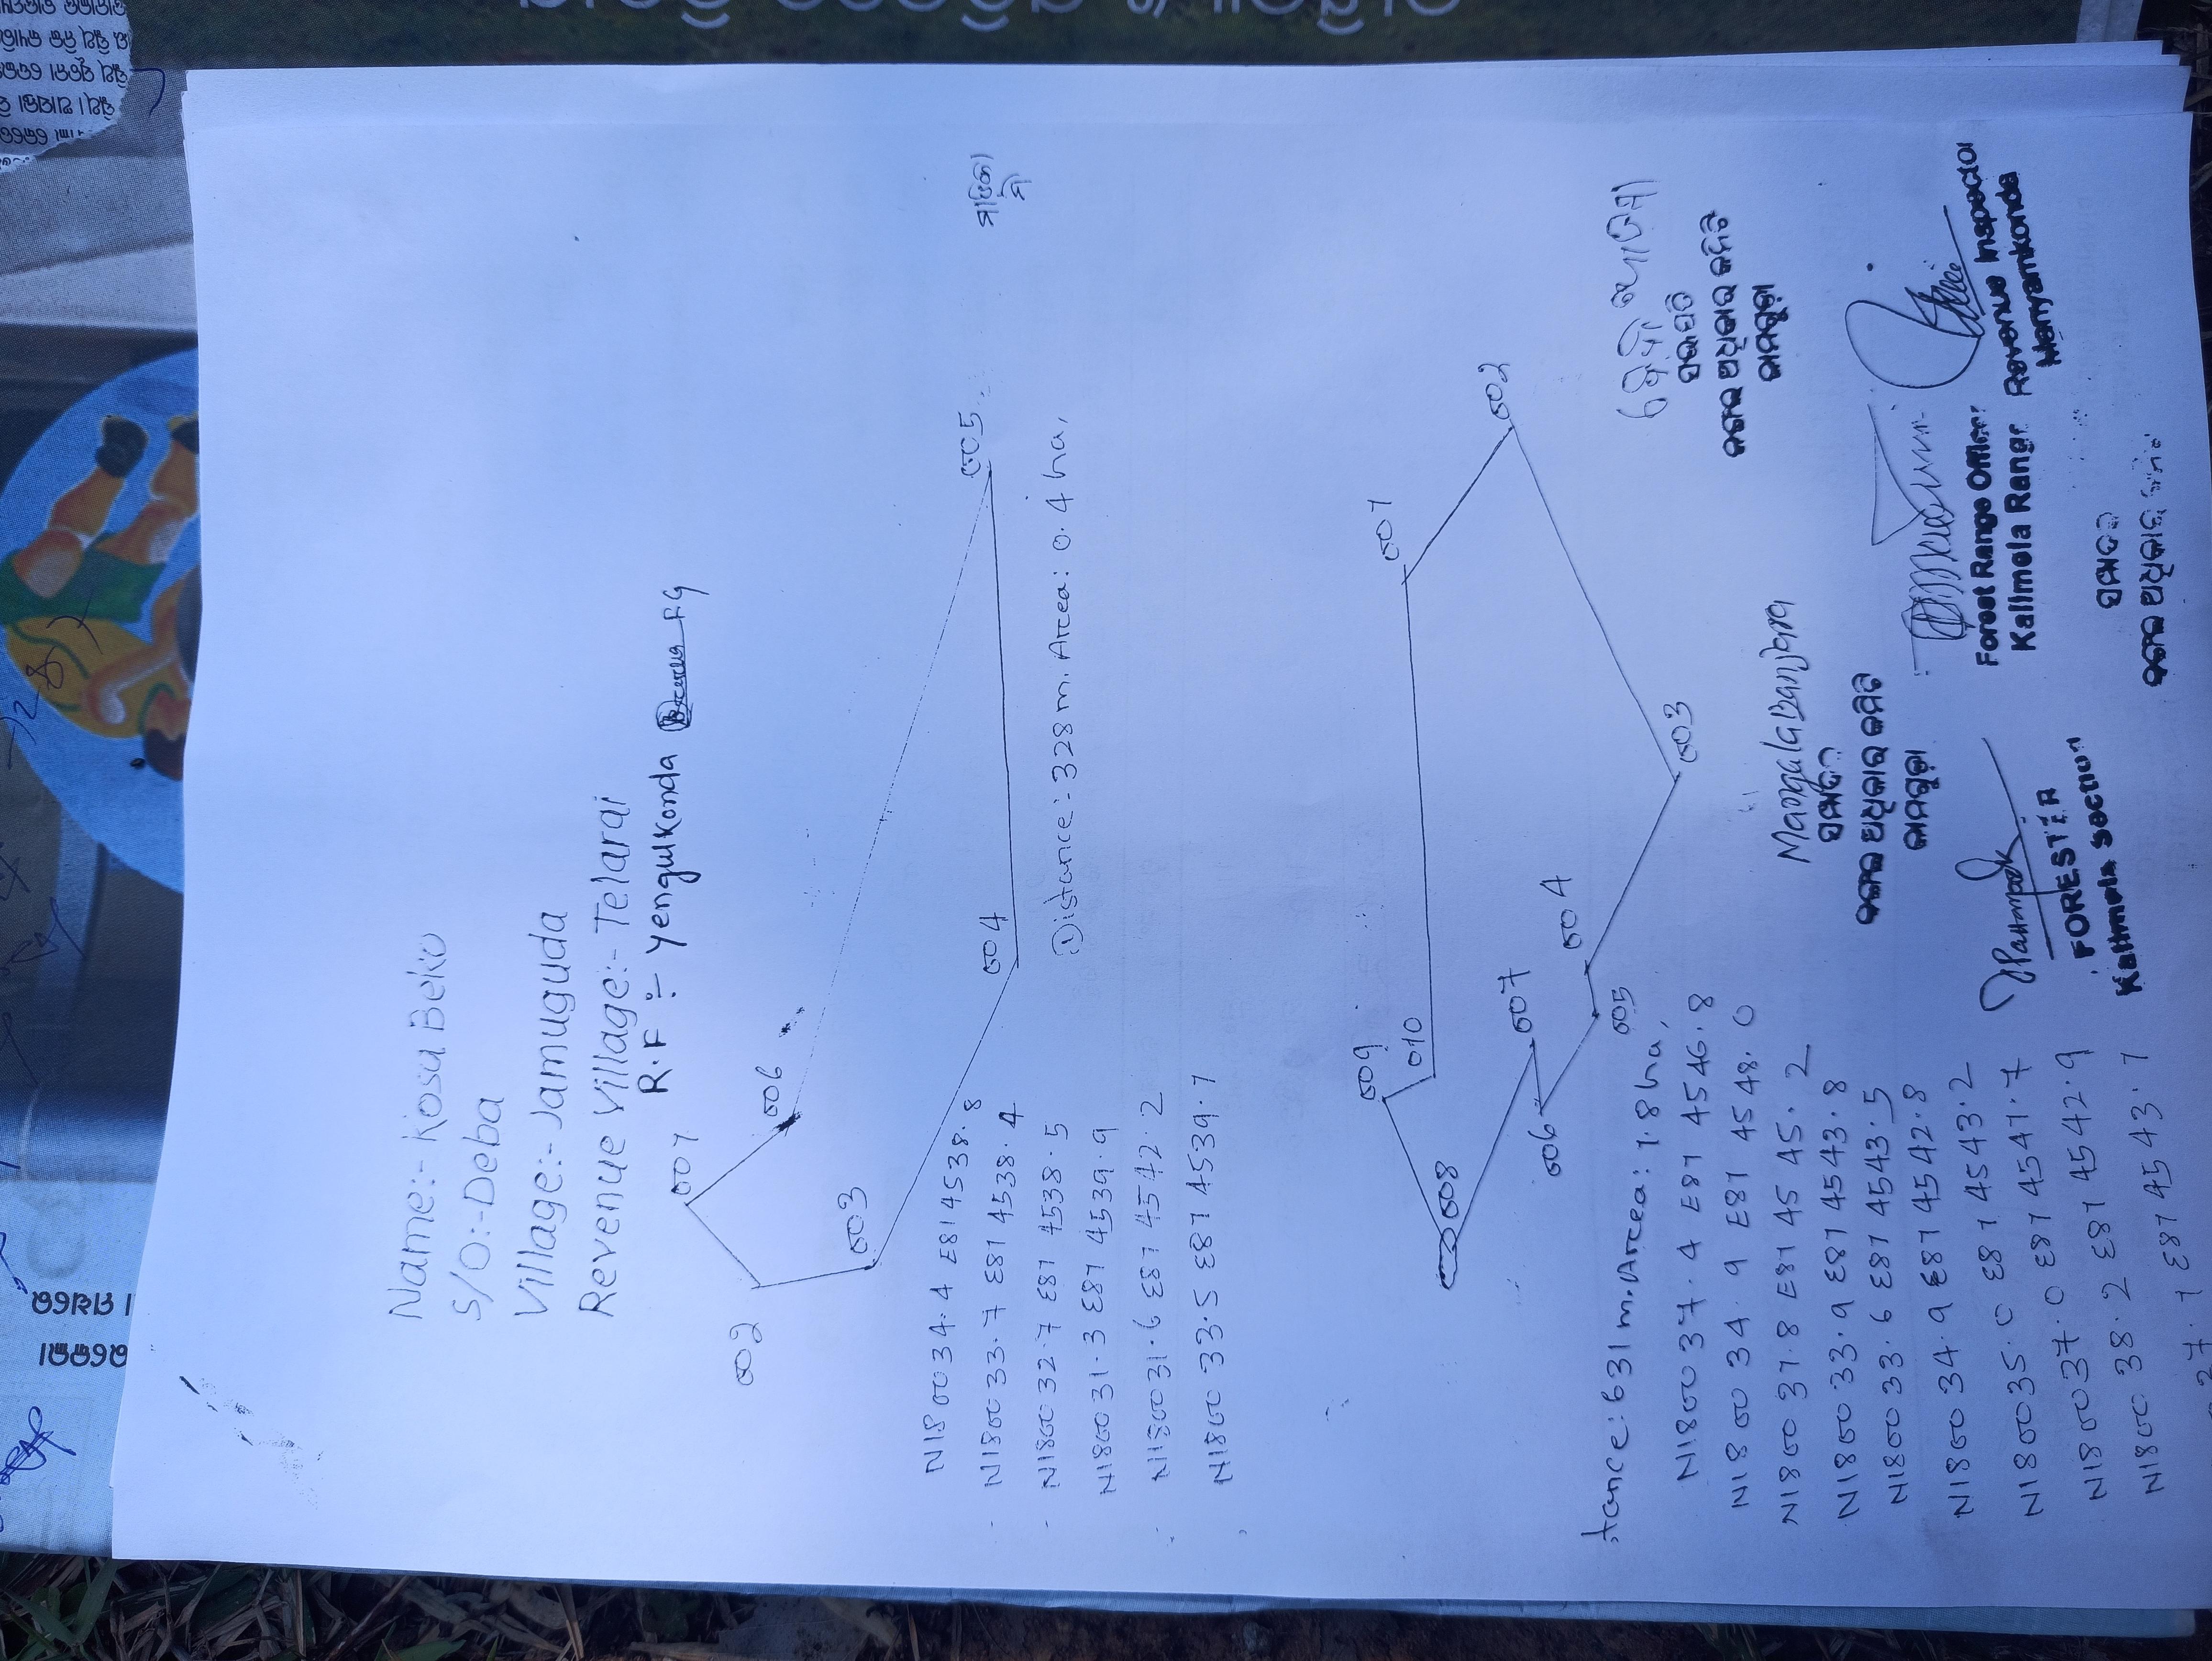 Name:- Kosa Beko
S/O:- Deba
Village:- Jamuguda
Revenue Village:- Telarai
R.F :- Yengulkonda
001
002
003
004
005
006
N18 00 34.4 E81 45 38.8
N18 00 33.7 E81 45 38.4
N18 00 32.7 E81 45 38.5
N18 00 31.3 E81 45 39.9
N18 00 31.6 E81 45 42.2
N18 00 33.5 E81 45 39.1
Distance:- 328 m. Area: 0.4 ha,
001
002
003
004
005
006
007
008
009
010
tance: 631 m. Area: 1.8 ha,
N18 00 37.4 E81 45 46.8
N18 00 34.9 E81 45 48.0
N18 00 31.8 E81 45 45.2
N18 00 33.9 E81 45 43.8
N18 00 33.6 E81 45 43.5
N18 00 34.9 E81 45 42.8
N18 00 35.0 E81 45 43.2
N18 00 37.0 E81 45 41.7
N18 00 38.2 E81 45 42.9
N18 00 37.1 E81 45 43.1
ସଭାପତି
ଜଙ୍ଗଲ ଅଧିକାର କମିଟି
ଜାମଗୁଡ଼ା
Mangala Banjara
ସମ୍ପାଦକ
ଜଙ୍ଗଲ ଅଧିକାର କମିଟି
ଜାମଗୁଡ଼ା
FORESTER
Kalimela Section
Forest Range Officer
Kalimela Range
Revenue Inspector
Manyamkonda
ଜଙ୍ଗଲ ଅଧିକାର